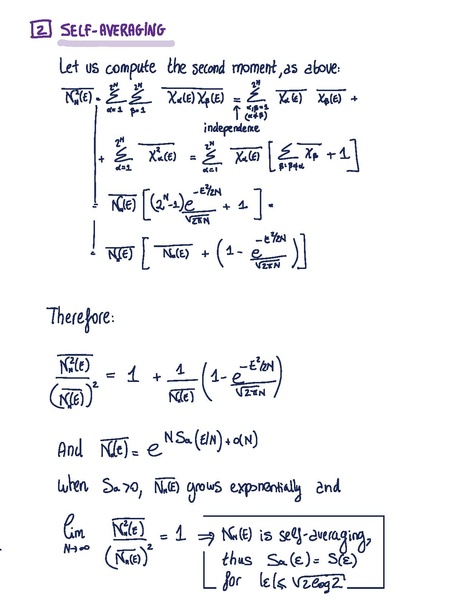 2 SELF-AVERAGING
Let us compute the second moment, as above:
$\overline{N_N^2(E)} = \sum_{\alpha=1}^{2^N} \sum_{\beta=1}^{2^N} \overline{\chi_\alpha(E) \chi_\beta(E)} = \sum_{\substack{\alpha,\beta=1 \\ (\alpha \neq \beta)}}^{2^N} \overline{\chi_\alpha(E)} \; \overline{\chi_\beta(E)} +$
↑
independence
$+ \sum_{\alpha=1}^{2^N} \overline{\chi_\alpha^2(E)} = \sum_{\alpha=1}^{2^N} \overline{\chi_\alpha(E)} \left[ \sum_{\beta: \beta \neq \alpha} \overline{\chi_\beta} + 1 \right]$
$= \overline{N_N(E)} \left[ (2^N-1) \frac{e^{-E^2/2N}}{\sqrt{2\pi N}} + 1 \right] =$
$= \overline{N_N(E)} \left[ \overline{N_N(E)} + \left( 1 - \frac{e^{-E^2/2N}}{\sqrt{2\pi N}} \right) \right]$
Therefore:
$\frac{\overline{N_N^2(E)}}{\left(\overline{N_N(E)}\right)^2} = 1 + \frac{1}{\overline{N_N(E)}} \left( 1 - \frac{e^{-E^2/2N}}{\sqrt{2\pi N}} \right)$
And $\overline{N_N(E)} = e^{N S_a(E/N) + o(N)}$
When $S_a > 0$, $\overline{N_N(E)}$ grows exponentially and
$\lim_{N \to \infty} \frac{\overline{N_N^2(E)}}{\left(\overline{N_N(E)}\right)^2} = 1 \Rightarrow$ $N_N(E)$ is self-averaging,
thus $S_a(\varepsilon) = S(\varepsilon)$
for $|\varepsilon| \leq \sqrt{2 \log 2}$